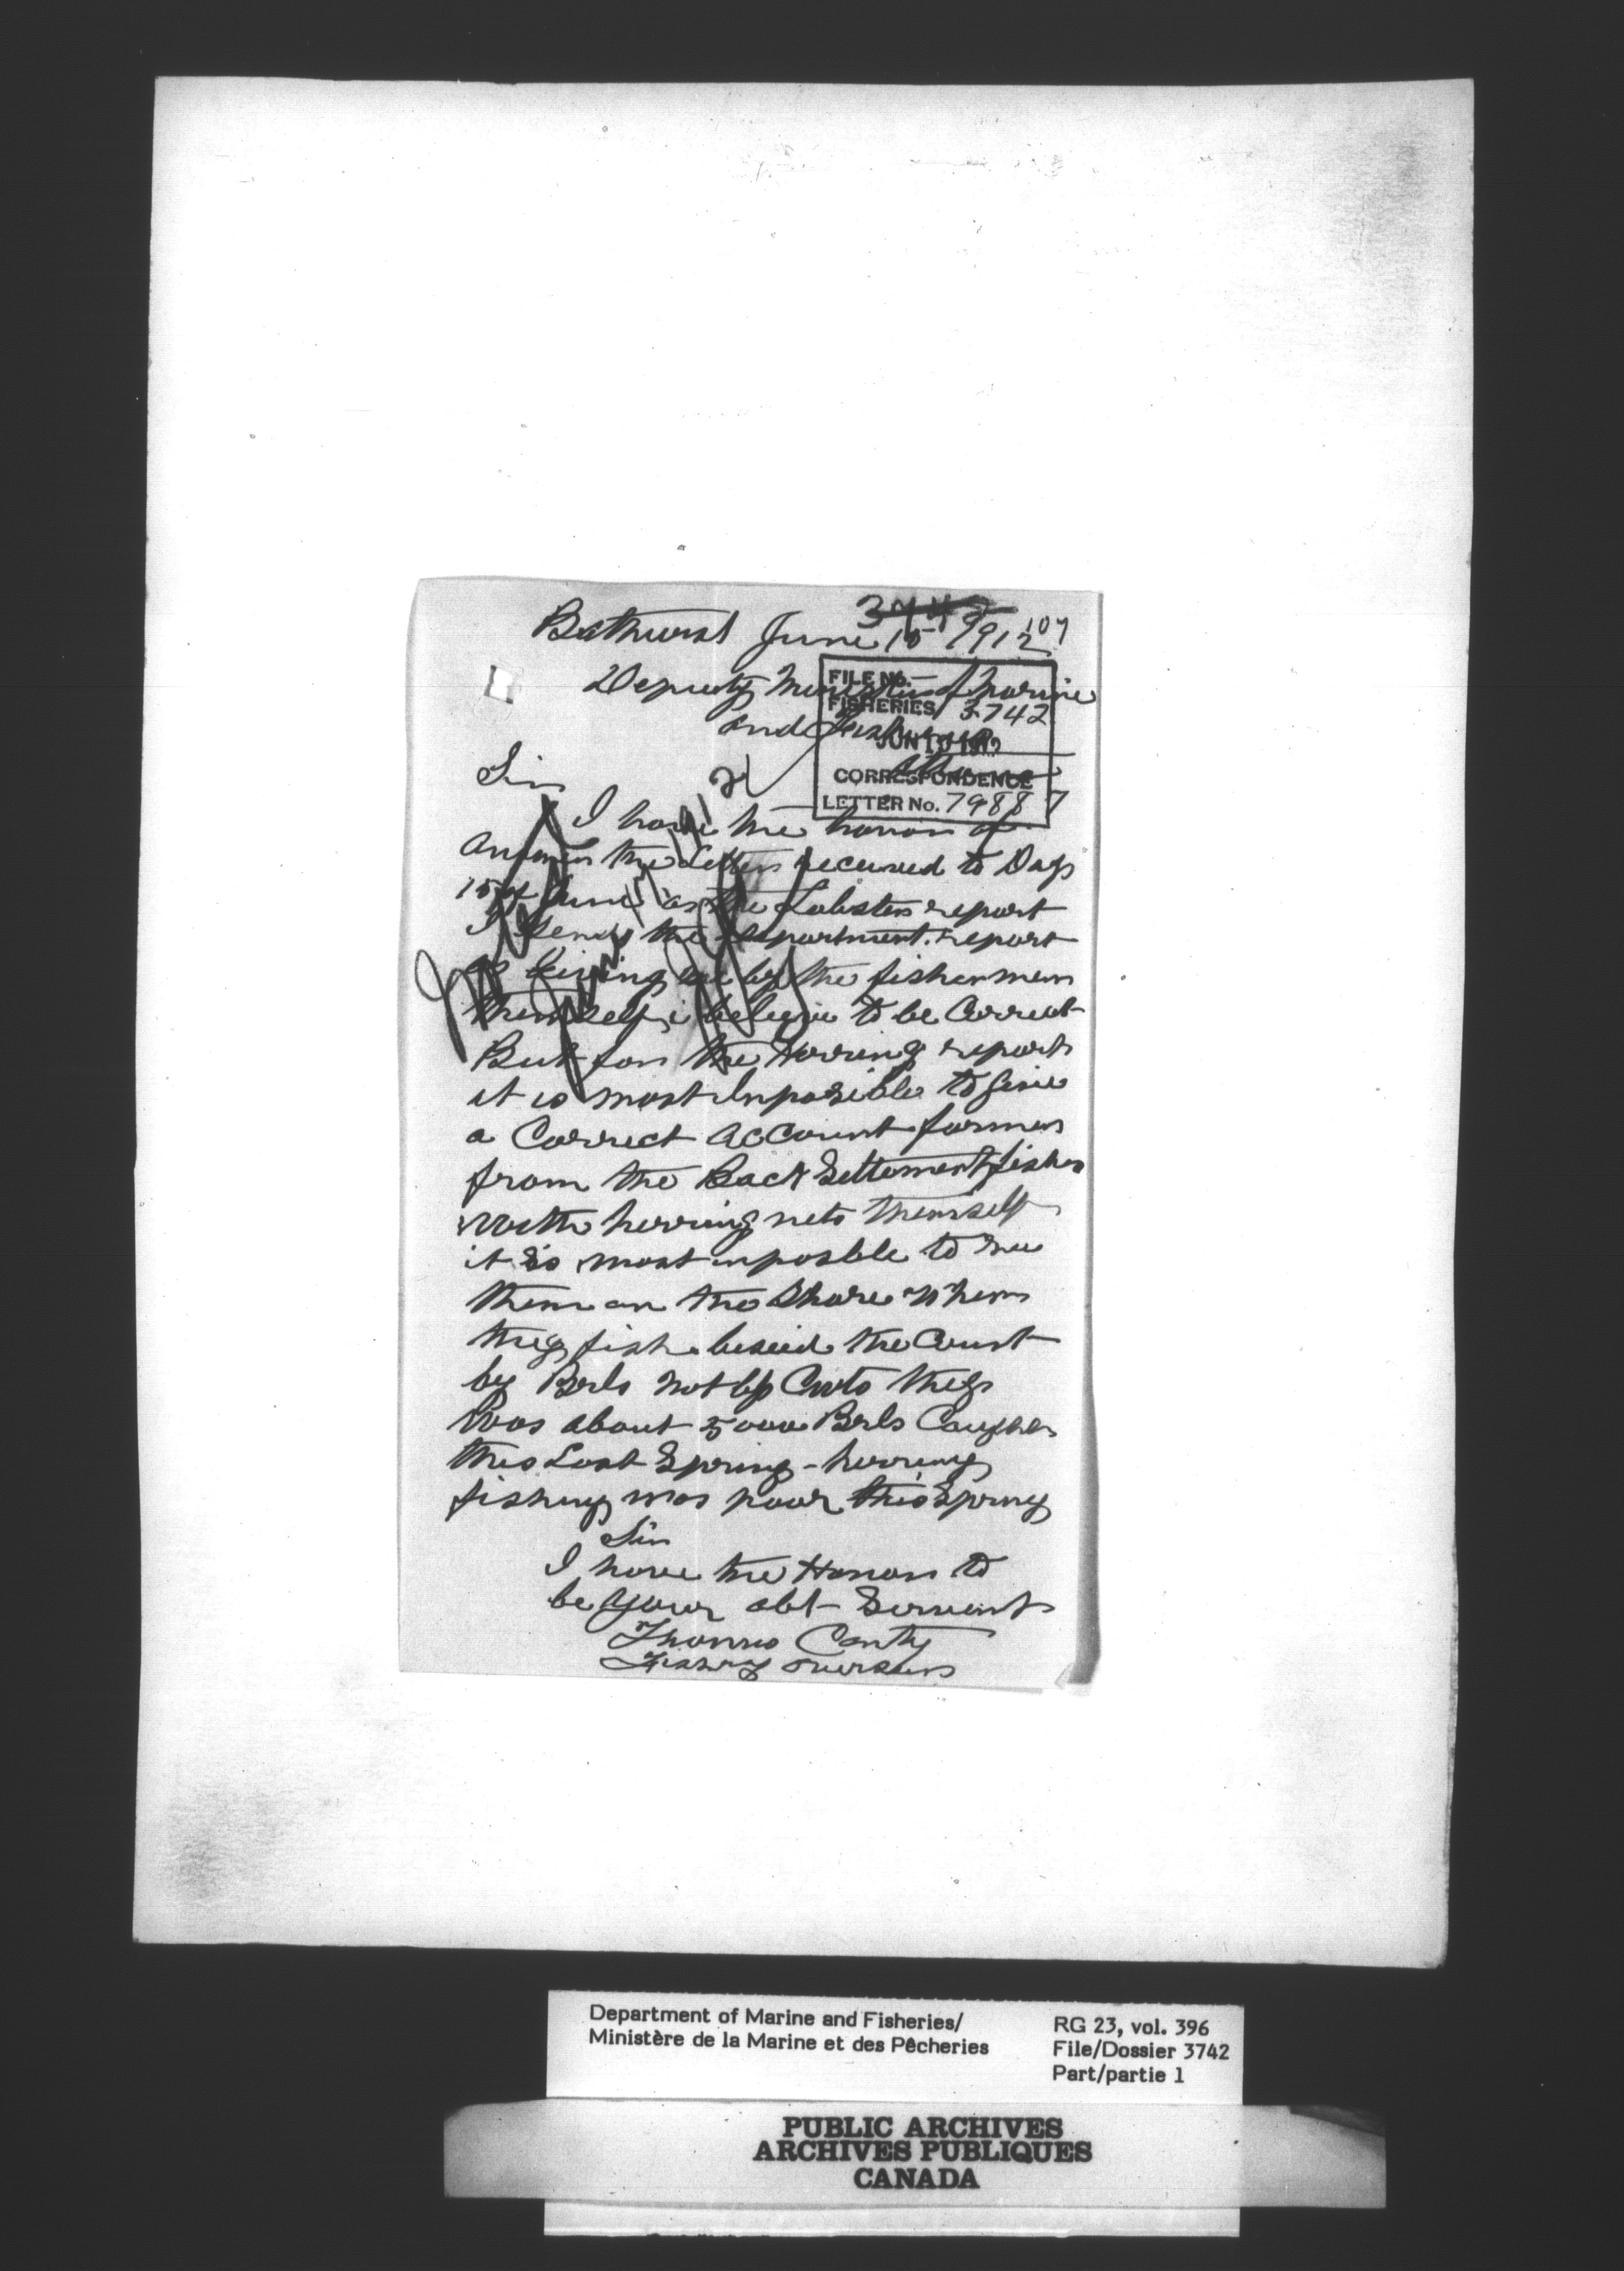 3742
Bathurst June 15 1912
107
Deputy Minister of Marine
and Fisheries
Ottawa
FILE No.
FISHERIES 3742
JUN 1912
CORRESPONDENCE
LETTER No. 79887
Sir
I have the honor of
Answer the Letter received to Day
15 of June as the Lobster report
I send the Department report
as giving me by the fishermen
themself i beleive to be Correct
But for the Herring report
it is most Imposible to give
a Correct Account farmers
from the Back Settlement fisher
with herring nets themself
it is most imposble to see
them on the Shore when
they fish beseid the Count
by Brls not by Cwts they
Was about 5000 Brls Caught
this Last Spring - herring
fishing was poor this Spring
Sir
I have the Honor to
be your obt Servant
Thomas Canty
Fishery overseer
Department of Marine and Fisheries/
Ministère de la Marine et des Pêcheries
RG 23, vol. 396
File/Dossier 3742
Part/partie 1
PUBLIC ARCHIVES
ARCHIVES PUBLIQUES
CANADA